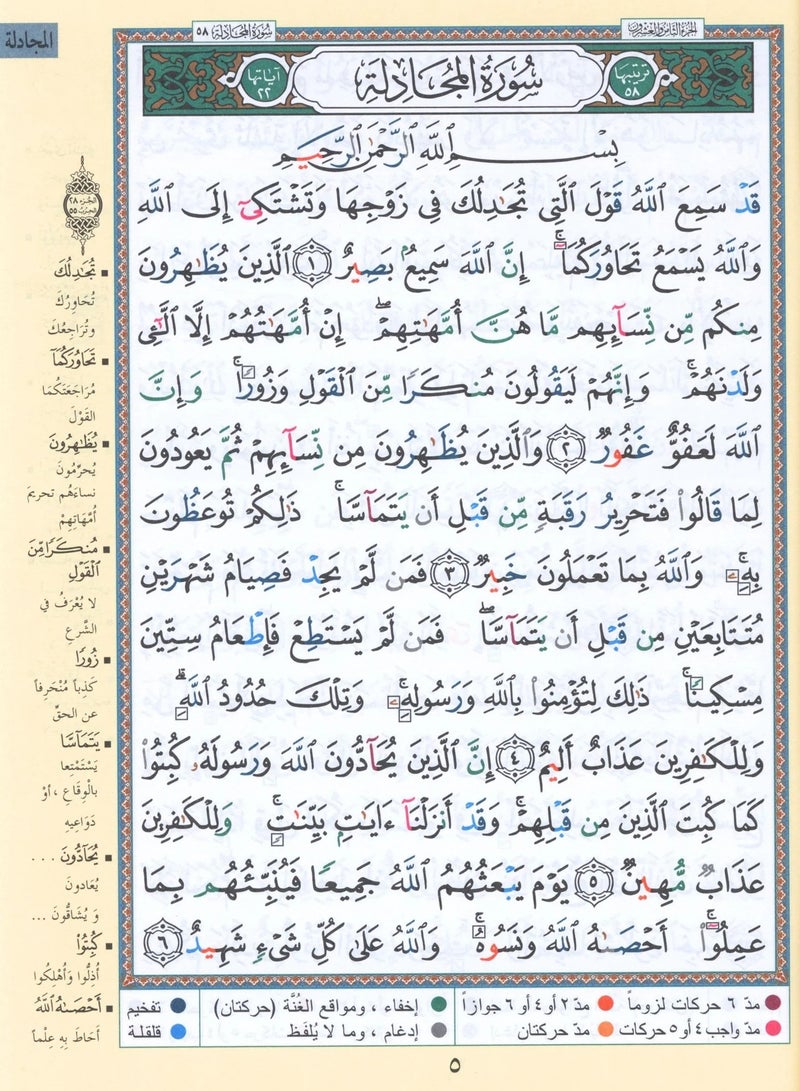 الجزء الثامن والعشرون
سورة المجادلة ٥٨
المجادلة
ترتيبها ٥٨
سُورَةُ المُجَادلَةِ
آياتها ٢٢
بِسْمِ ٱللَّهِ ٱلرَّحْمَٰنِ ٱلرَّحِيمِ
قَدْ سَمِعَ ٱللَّهُ قَوْلَ ٱلَّتِى تُجَٰدِلُكَ فِى زَوْجِهَا وَتَشْتَكِىٓ إِلَى ٱللَّهِ
وَٱللَّهُ يَسْمَعُ تَحَاوُرَكُمَآ ۚ إِنَّ ٱللَّهَ سَمِيعٌۢ بَصِيرٌ ١ ٱلَّذِينَ يُظَٰهِرُونَ
مِنكُم مِّن نِّسَآئِهِم مَّا هُنَّ أُمَّهَٰتِهِمْ ۖ إِنْ أُمَّهَٰتُهُمْ إِلَّا ٱلَّٰٓـِٔى
وَلَدْنَهُمْ ۚ وَإِنَّهُمْ لَيَقُولُونَ مُنكَرًا مِّنَ ٱلْقَوْلِ وَزُورًا ۚ وَإِنَّ
ٱللَّهَ لَعَفُوٌّ غَفُورٌ ٢ وَٱلَّذِينَ يُظَٰهِرُونَ مِن نِّسَآئِهِمْ ثُمَّ يَعُودُونَ
لِمَا قَالُوا۟ فَتَحْرِيرُ رَقَبَةٍ مِّن قَبْلِ أَن يَتَمَآسَّا ۚ ذَٰلِكُمْ تُوعَظُونَ
بِهِۦ ۚ وَٱللَّهُ بِمَا تَعْمَلُونَ خَبِيرٌ ٣ فَمَن لَّمْ يَجِدْ فَصِيَامُ شَهْرَيْنِ
مُتَتَابِعَيْنِ مِن قَبْلِ أَن يَتَمَآسَّا ۖ فَمَن لَّمْ يَسْتَطِعْ فَإِطْعَامُ سِتِّينَ
مِسْكِينًا ۚ ذَٰلِكَ لِتُؤْمِنُوا۟ بِٱللَّهِ وَرَسُولِهِۦ ۚ وَتِلْكَ حُدُودُ ٱللَّهِ ۗ
وَلِلْكَٰفِرِينَ عَذَابٌ أَلِيمٌ ٤ إِنَّ ٱلَّذِينَ يُحَآدُّونَ ٱللَّهَ وَرَسُولَهُۥ كُبِتُوا۟
كَمَا كُبِتَ ٱلَّذِينَ مِن قَبْلِهِمْ ۚ وَقَدْ أَنزَلْنَآ ءَايَٰتٍۭ بَيِّنَٰتٍ ۚ وَلِلْكَٰفِرِينَ
عَذَابٌ مُّهِينٌ ٥ يَوْمَ يَبْعَثُهُمُ ٱللَّهُ جَمِيعًا فَيُنَبِّئُهُم بِمَا
عَمِلُوٓا۟ ۚ أَحْصَىٰهُ ٱللَّهُ وَنَسُوهُ ۚ وَٱللَّهُ عَلَىٰ كُلِّ شَىْءٍ شَهِيدٌ ٦
الجزء ٢٨
الحزب ٥٥
تُجَٰدِلُكَ
تُحَاوِرُكَ
وتُرَاجِعُكَ
تَحَاوُرَكُمَآ
مُرَاجَعَتَكُمَا
القَوْلَ
يُظَٰهِرُونَ
يُحَرِّمُونَ
نساءَهُم تحريمَ
أُمَّهَاتِهِمْ
مُنكَرًا مِّنَ
ٱلْقَوْلِ
لا يُعْرَفُ في
الشَّرعِ
زُورًا
كَذِباً مُنْحَرِفاً
عن الحقِّ
يَتَمَآسَّا
يَسْتَمْتِعا
بالْوِقَاعِ ، أوْ
دَوَاعِيهِ
يُحَآدُّونَ ...
يُعَادونَ
وَ يُشَاقُّونَ ...
كُبِتُوا۟
أُذِلُّوا وَأُهْلِكُوا
أَحْصَىٰهُ ٱللَّهُ
أَحَاطَ بِهِ عِلْماً
مدّ ٦ حركات لزوماً مدّ ٢ أو ٤ أو ٦ جوازاً إخفاء ، ومواقع الغُنَّة (حركتان) تفخيم
مدّ واجب ٤ أو ٥ حركات مدّ حركتان إدغام ، وما لا يُلفَظ قلقلة
٥